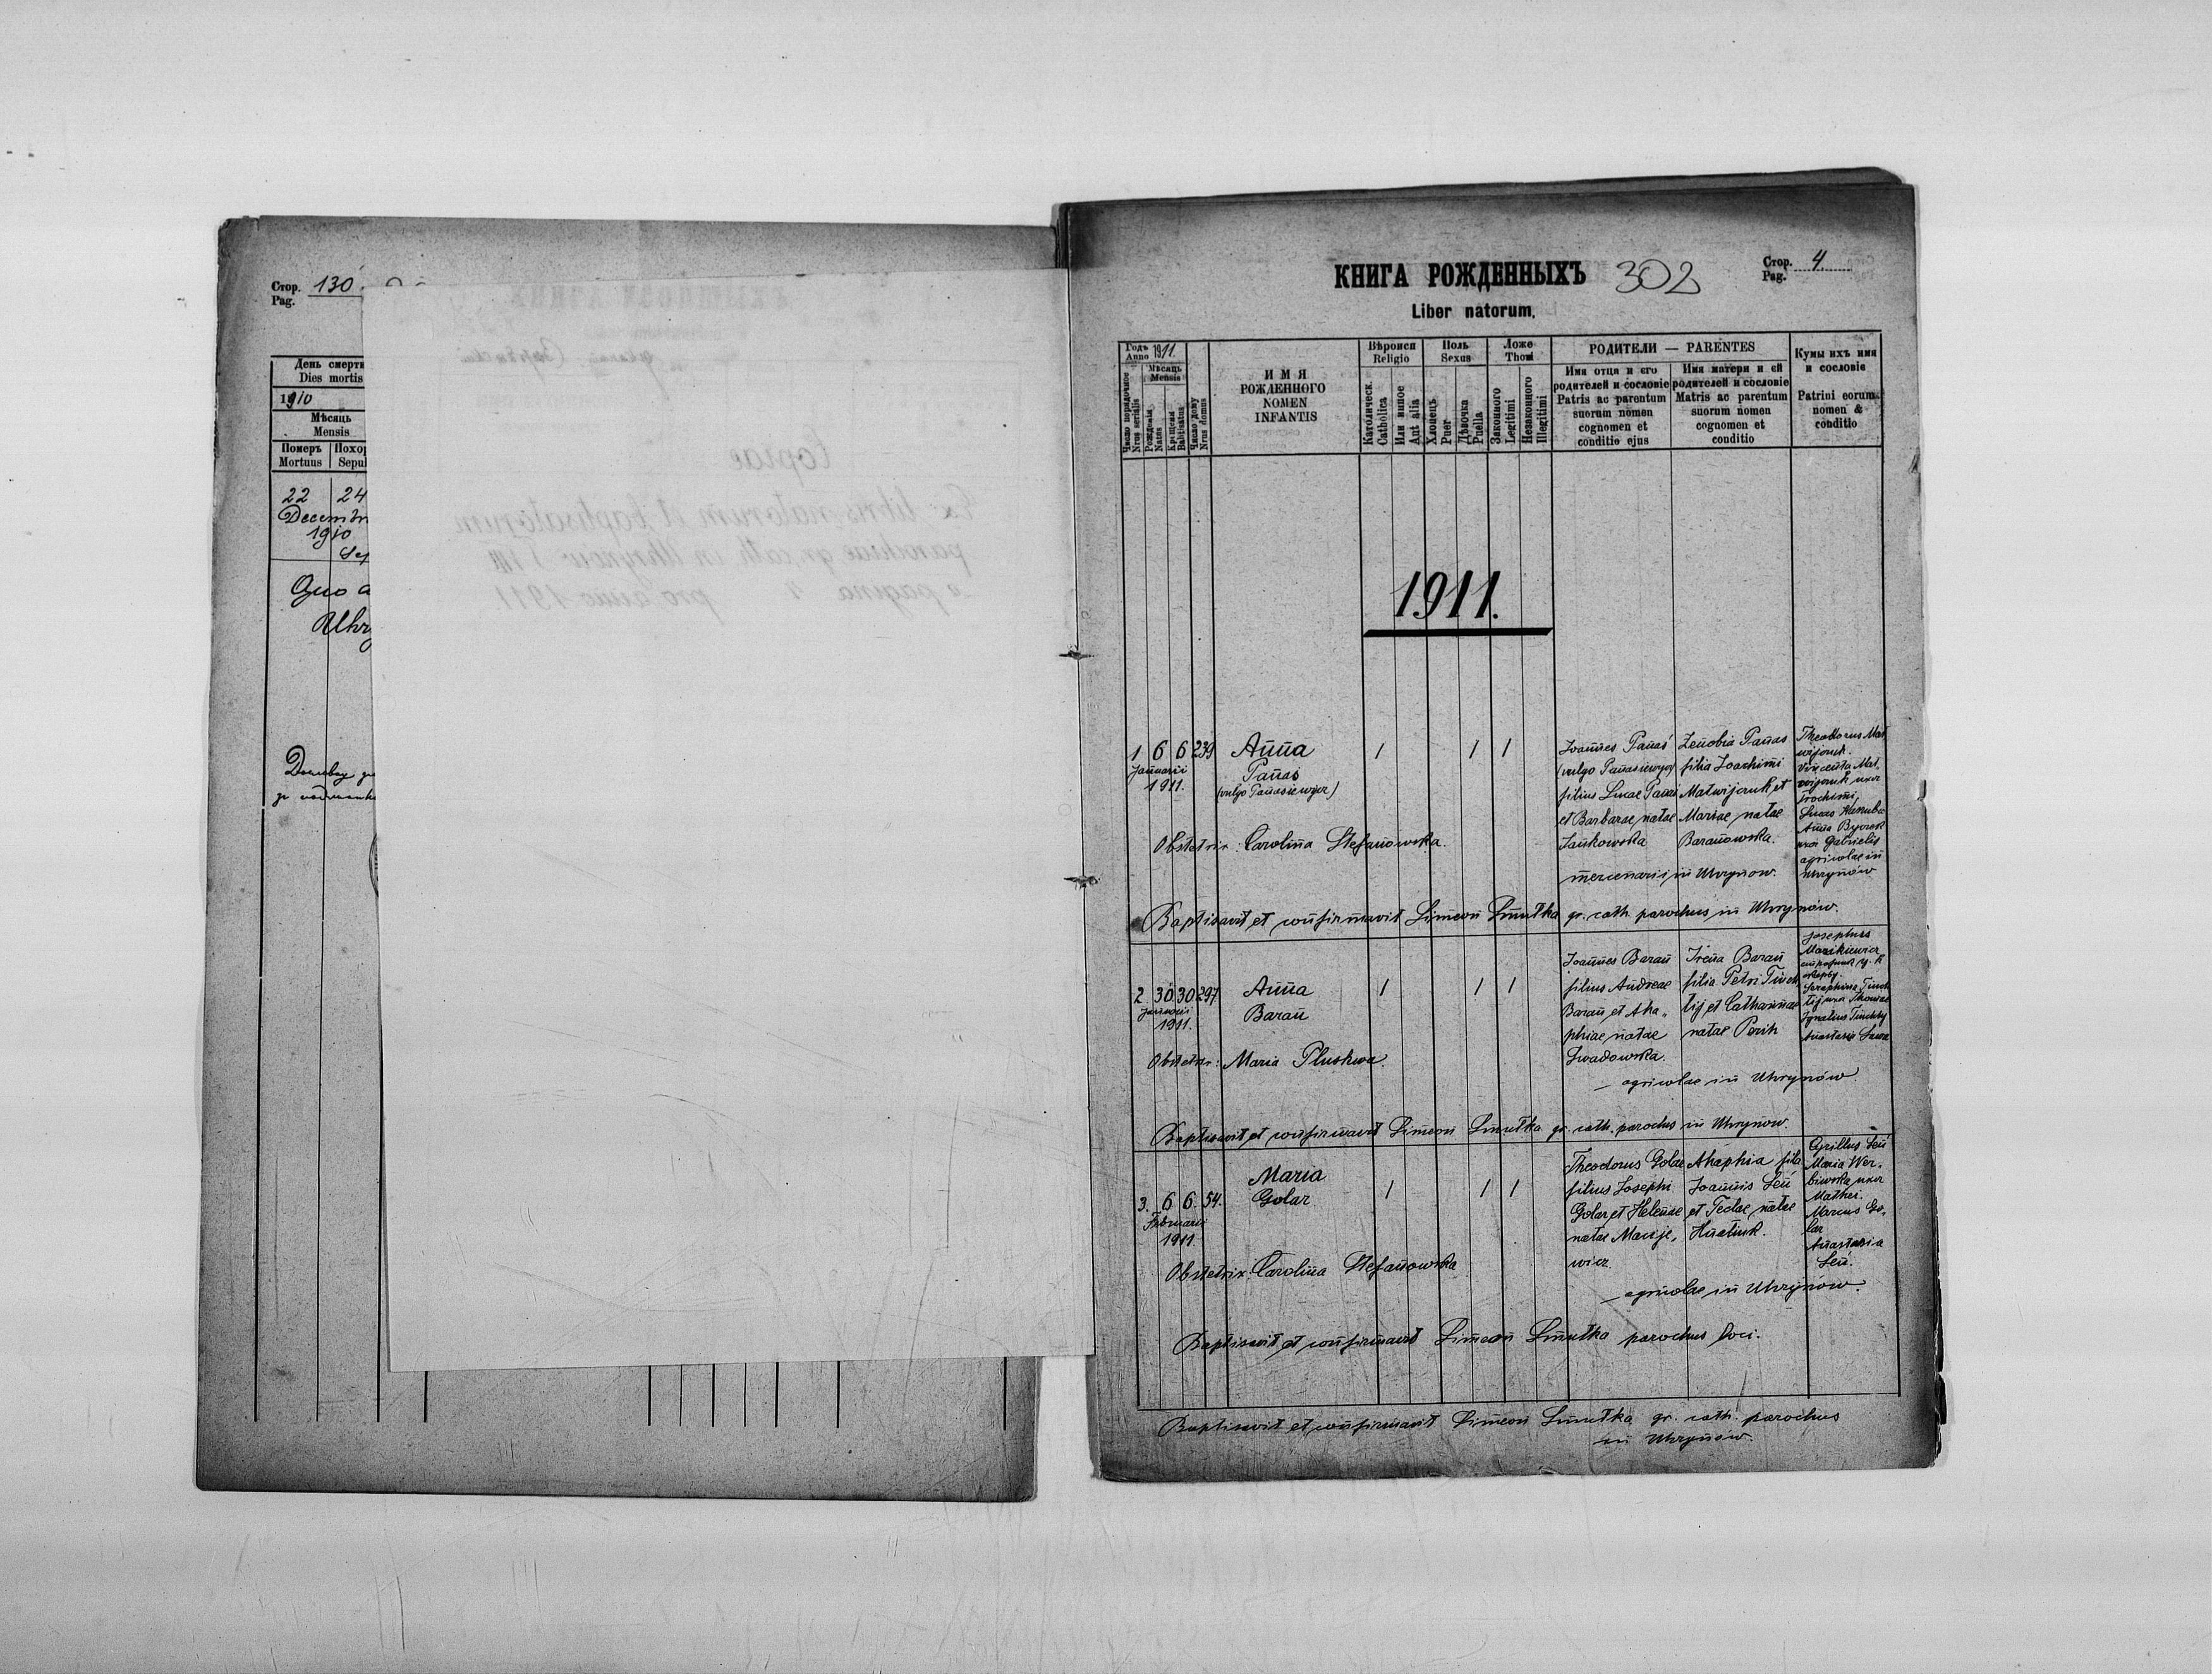 Стор. 130
Pag.
День смерти
Dies mortis
1910
Мѣсяць
Mensis
Померъ
Mortuus
22 24
Decem
1910
Quo
Uhry
Стор. 4
Pag.
КНИГА РОЖДЕННЫХЪ 302
Liber natorum.
Годъ 1911.
Anno
Мѣсяць
Mensis
Число порядковое
Nrus serialis
Рожденія
Natus
Крещенія
Babtisatus
Число дому
Nrus domus
И М Я
РОЖДЕННОГО
NOMEN
INFANTIS
Вѣроисп
Religio
Католическ.
Catholica
Или инное
Aut alia
Полъ
Sexus
Хлопецъ
Puer
Дѣвочка
Puella
Ложе
Thori
Законного
Legitimi
Незаконного
Illegitimi
РОДИТЕЛИ — PARENTES
Имя отца и его
родителей и сословіе
Patris ac parentum
suorum nomen
cognomen et
conditio ejus
Имя матери и ей
родителей и сословіе
Matris ac parentum
suorum nomen
cognomen et
conditio
Кумы ихъ имя
и сословіе
Patrini eorum
nomen &
conditio
1911.
1 6 6 239
Januarii
1911.
Anna
Panas
(vulgo Panasiewycz)
1 1 1
Joannes Panas
(vulgo Panasiewycz)
filius Lucae Panas
et Barbarae natae
Jankowska
Zenobia Panas
filia Joachimi
Matwijczuk et
Mariae natae
Baranowska.
mercenarii in Uhrynow.
Theodorus Mat
wijczuk.
Vincenta Mat-
wijczuk uxor
Trochimi,
Lucas
Anna
uxor Gabrielis
agricolae in
Uhrynów
Obstetrix: Carolina Stefanowska.
Baptisavit et confirmavit Simeon Smutka gr. cath. parochus in Uhrynów.
2 30 30 297
Januarii
1911.
Anna
Baran
1 1 1
Joannes Baran
filius Andreae
Baran et Aha-
phiae natae
Irena Baran
filia Petri
et Catharinae
natae
agricolae in Uhrynów.
Josephus
Seraphina
uxor Thomae
Ignatius
Anastasia
Obstetrix: Maria Pluskwa.
Baptisavit et confirmavit Simeon Smutka gr. cath. parochus in Uhrynow.
3. 6 6. 54.
Februarii
1911.
Maria
Golar
1 1 1
Theodorus Golar
filius Josephi
Golar et Helenae
natae Macije-
wicz.
Ahaphia filia
Joannis Leń
et Teclae natae
Hnatiuk.
agricolae in Uhrynów.
Cyrillus Leń
Maria Wer-
biwska uxor
Mathei.
Marcus Go-
lar
Anastasia
Leń.
Obstetrix: Carolina Stefanowska
Baptisavit et confirmavit Simeon Smutka parochus loci.
Baptisavit et confirmavit Simeon Smutka gr. cath. parochus
in Uhrynów.